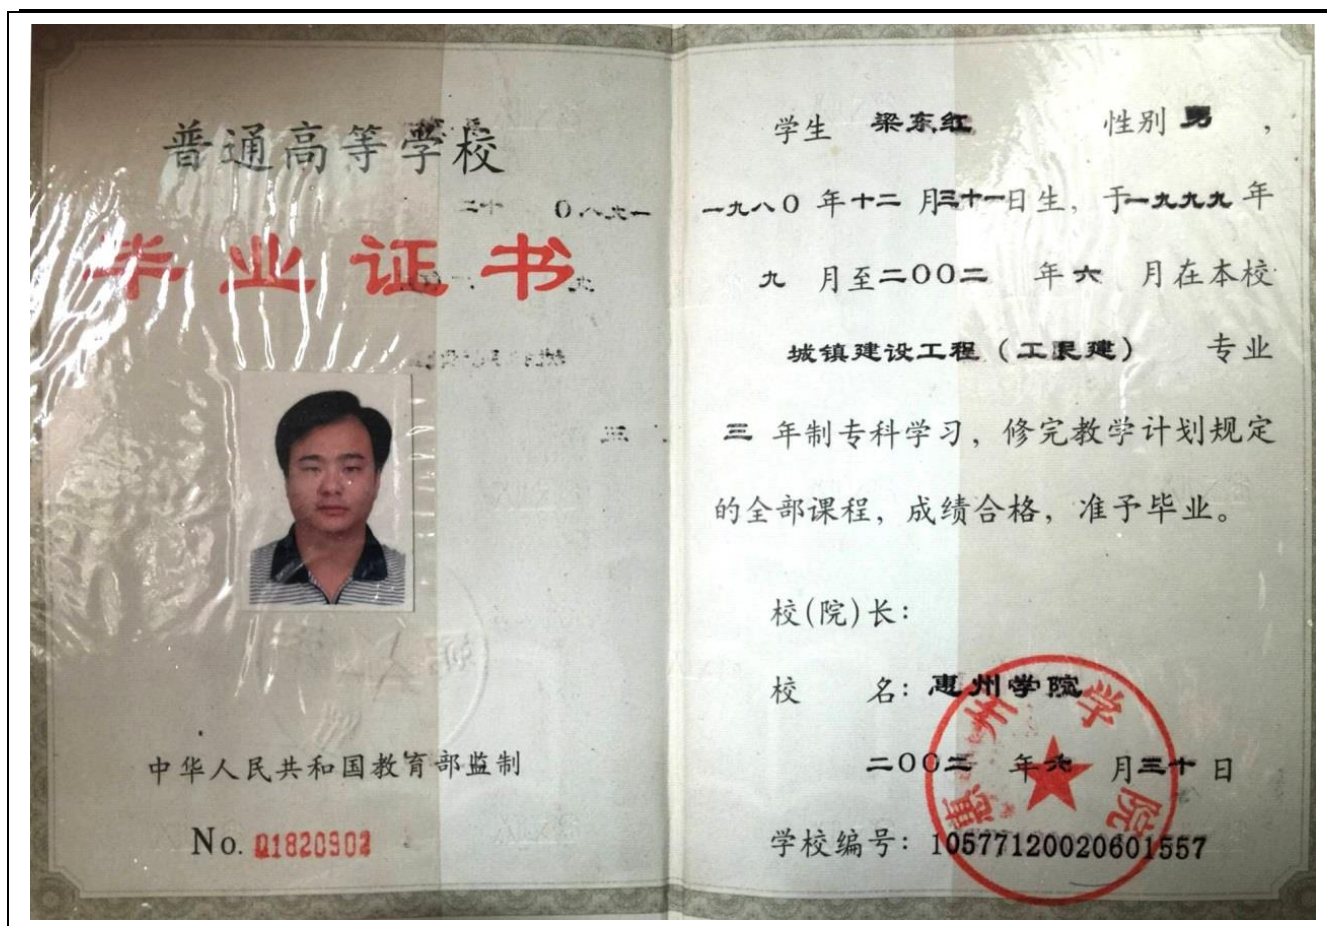 普通高等学校
毕业证书
中华人民共和国教育部监制
No. 01820902
学生 梁东红 性别 男 ,
一九八〇 年 十二 月 三十一 日生, 于 一九九九 年
九 月至 二〇〇二 年 六 月在本校
城镇建设工程(工民建) 专业
三 年制专科学习, 修完教学计划规定
的全部课程, 成绩合格, 准予毕业。
校(院)长:
校 名: 惠州学院
惠州学院
二〇〇二 年 六 月 三十 日
学校编号: 10577120020601557